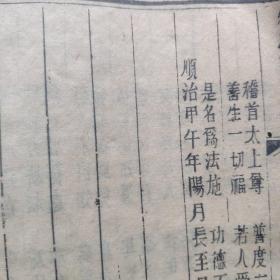 稽首太上尊 普度
善生一切福 若人受
是名爲法施 功德不
順治甲午年陽月長至日